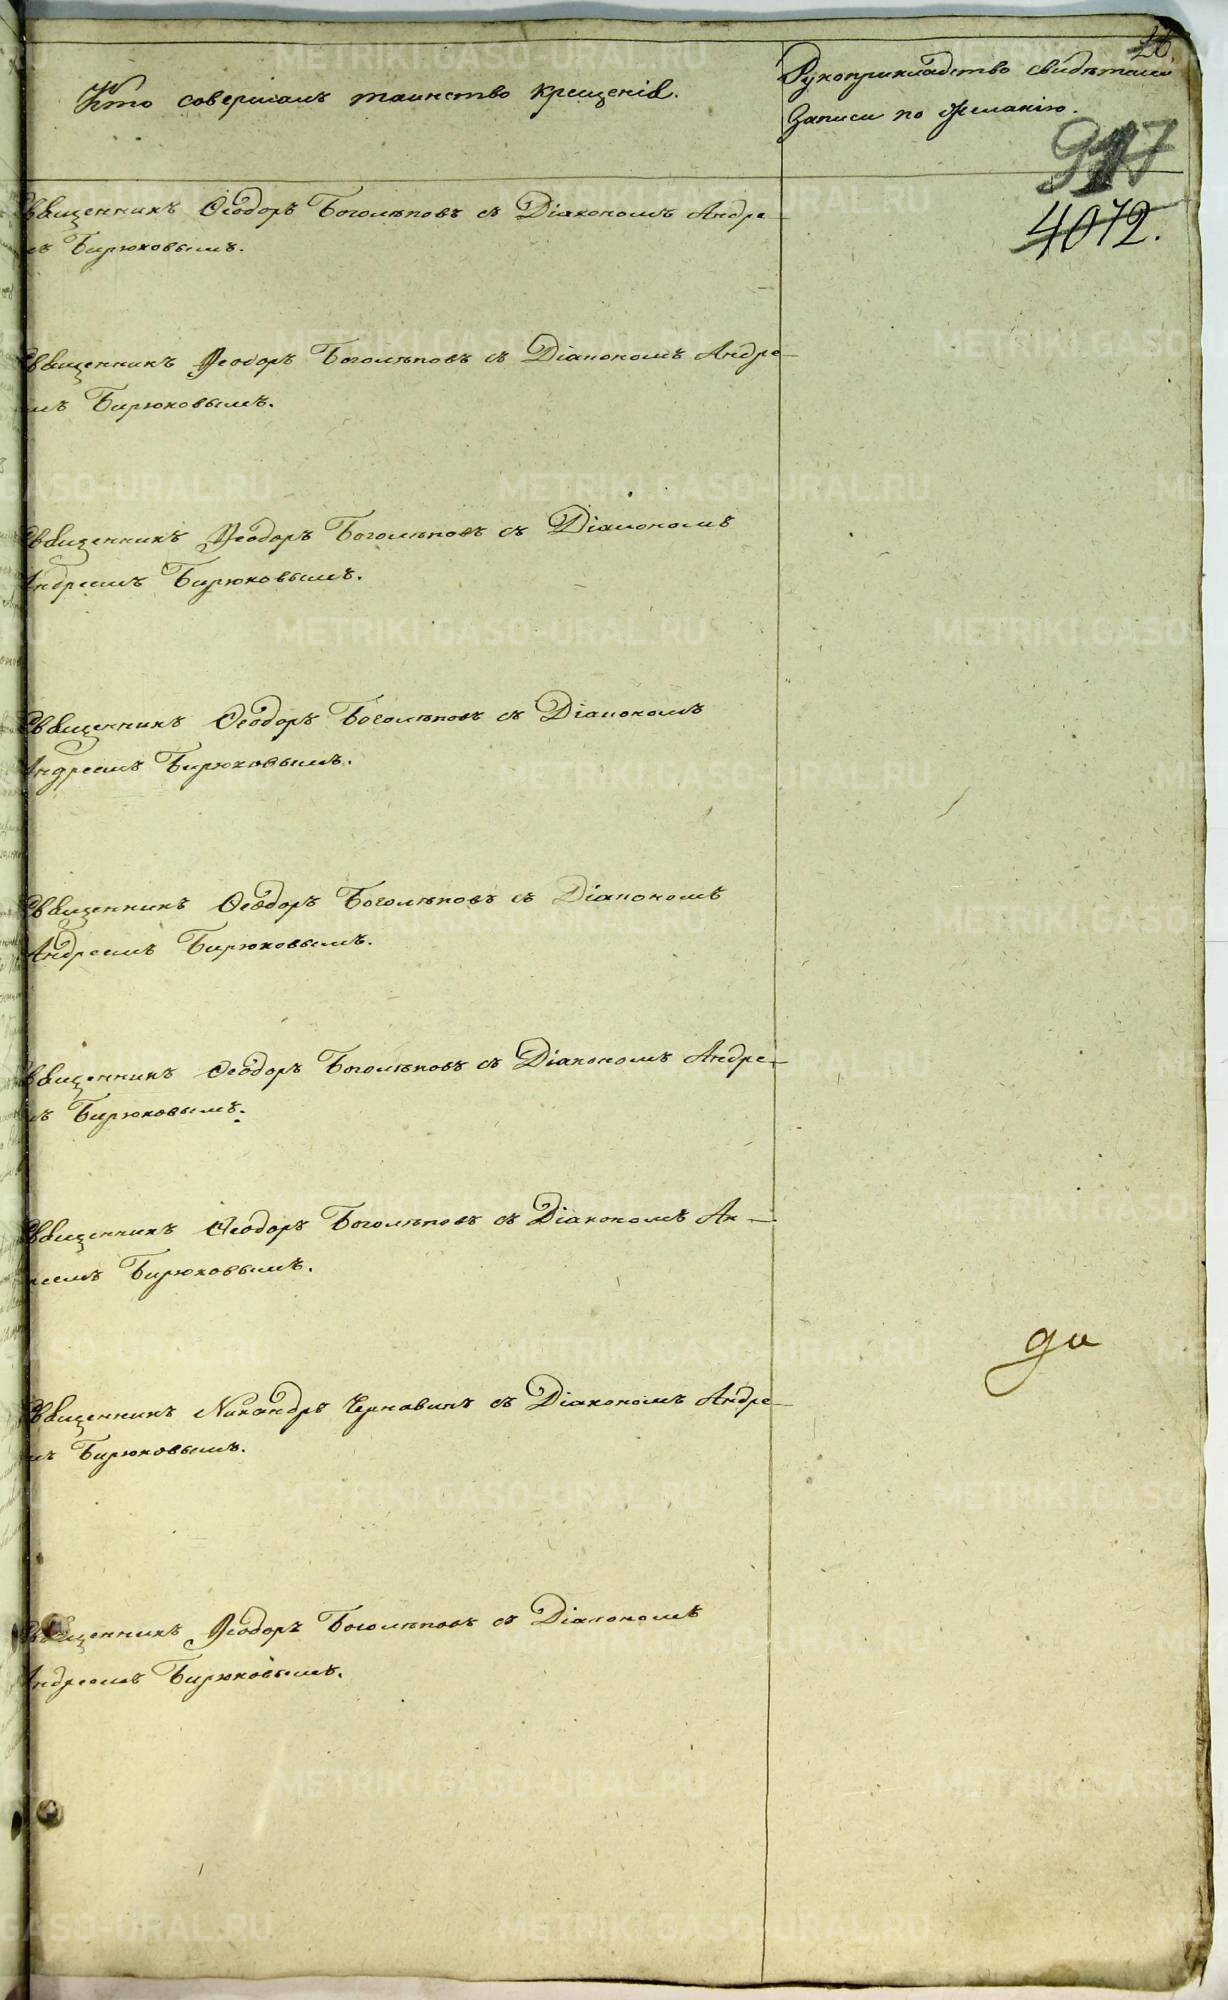 Кто совершалъ таинство крещенія.
Рукоприкладство свидѣтелей
записи по желанію.
4072.
Священникъ Ѳеодоръ Боголѣповъ съ Діакономъ Андре-
мъ Бирюковымъ.
Священникъ Ѳеодоръ Боголѣповъ съ Діакономъ Андре-
мъ Бирюковымъ.
Священникъ Ѳеодоръ Боголѣповъ съ Діакономъ
Андреемъ Бирюковымъ.
Священникъ Ѳеодоръ Боголѣповъ съ Діакономъ
Андреемъ Бирюковымъ.
Священникъ Ѳеодоръ Боголѣповъ съ Діакономъ
Андреемъ Бирюковымъ.
Священникъ Ѳеодоръ Боголѣповъ съ Діакономъ Андре-
мъ Бирюковымъ.
Священникъ Ѳеодоръ Боголѣповъ съ Діакономъ Ан-
реемъ Бирюковымъ.
Священникъ Никандръ Чернавинъ съ Діакономъ Андре-
мъ Бирюковымъ.
Священникъ Ѳеодоръ Боголѣповъ съ Діакономъ
Андреемъ Бирюковымъ.
METRIKI.GASO-URAL.RU